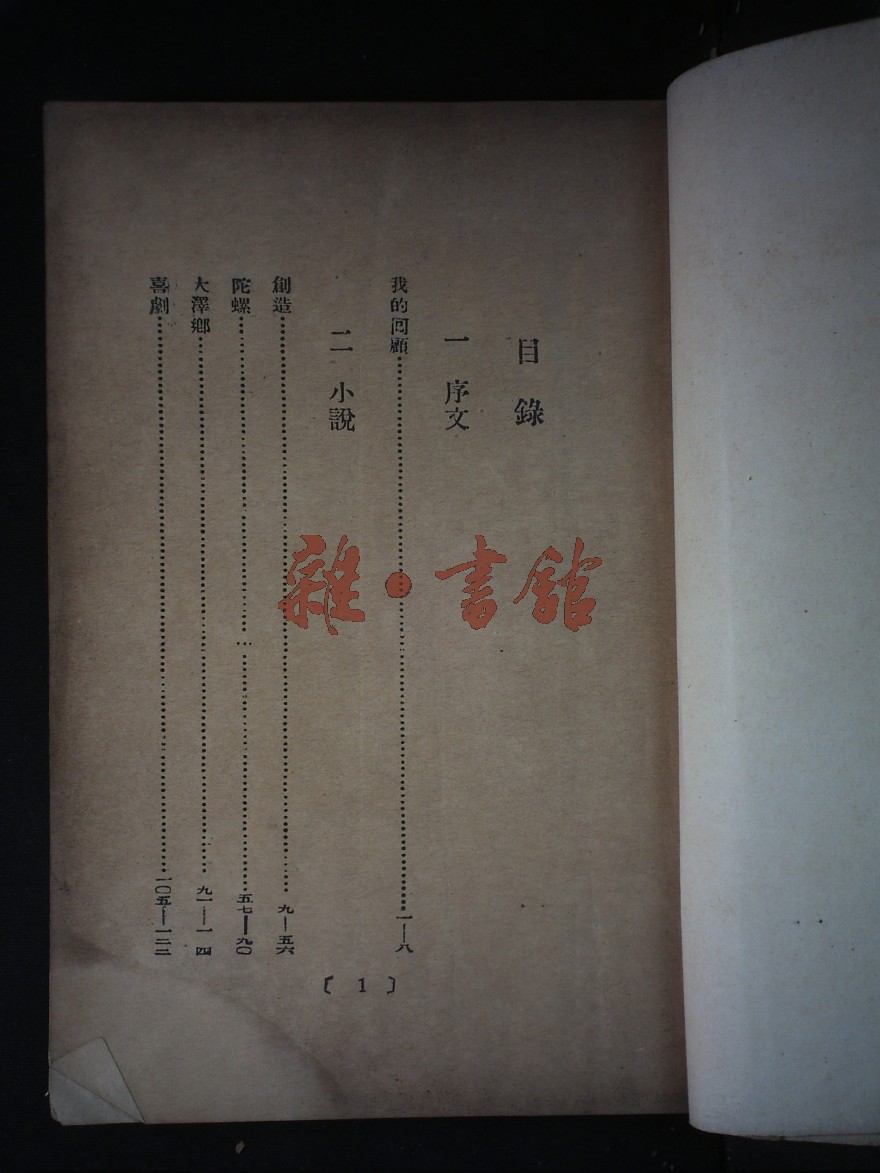 目錄
一 序文
我的回顧……一—八
二 小說
創造……九—五六
陀螺……五七—九〇
大澤鄉……九一—一一四
喜劇……一〇五—一二二
〔1〕
雜·書館